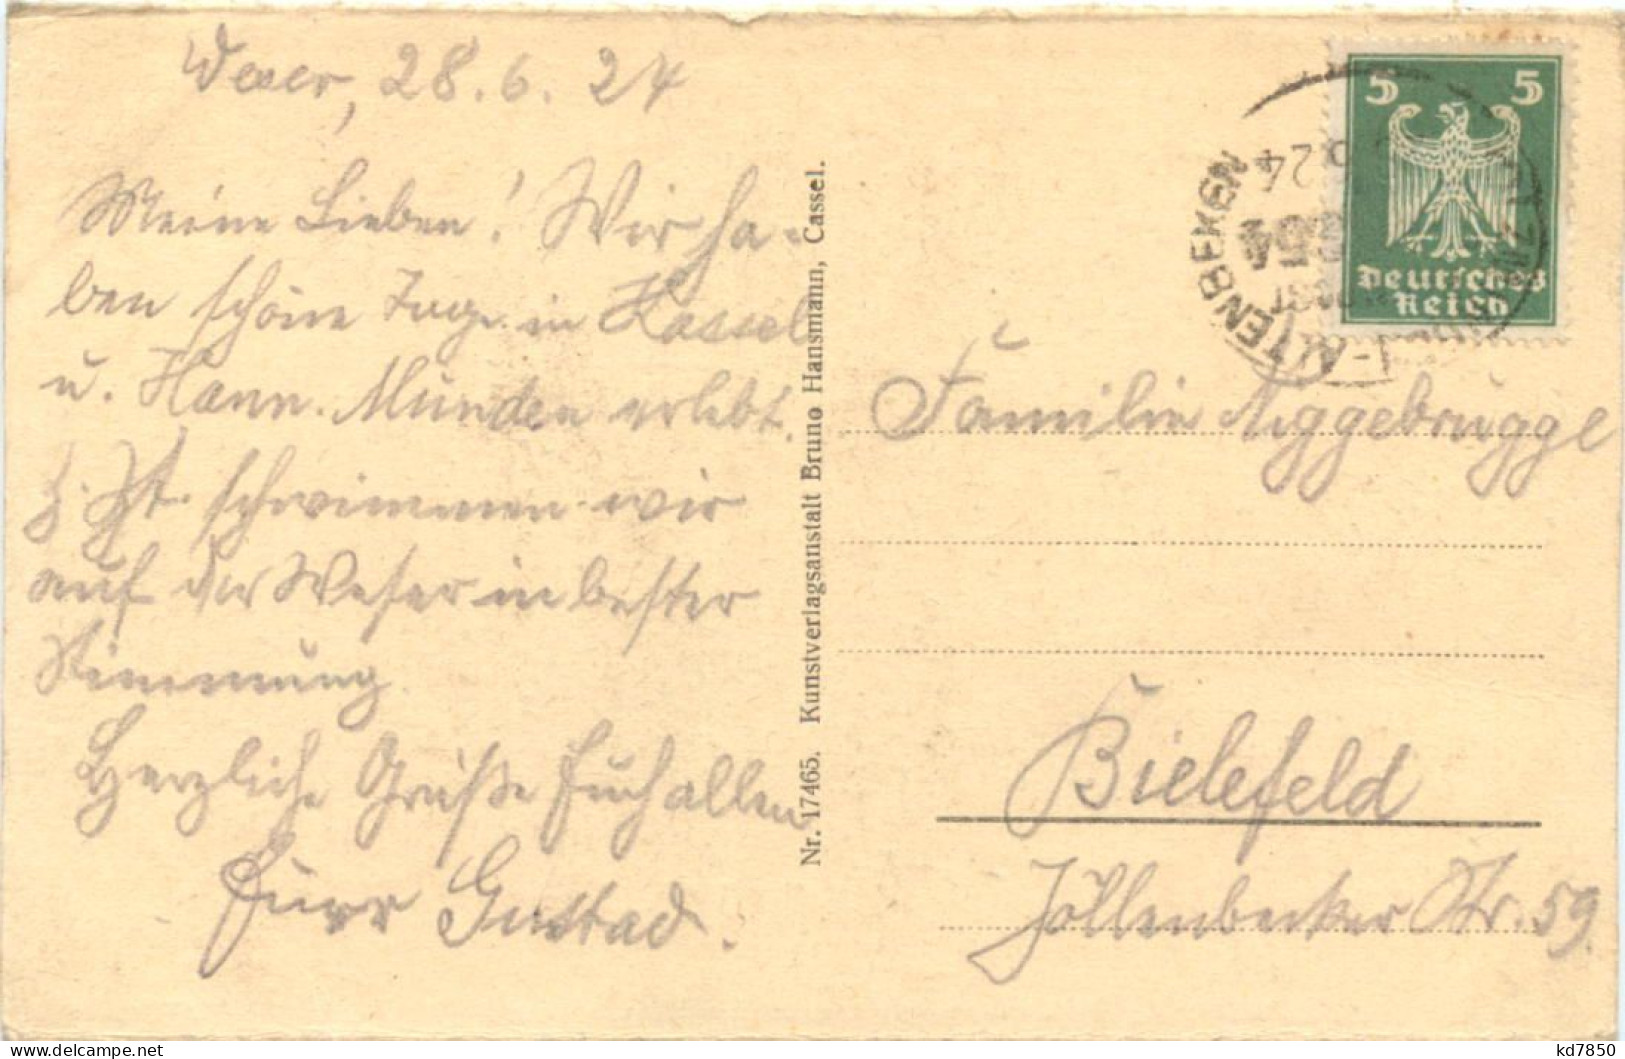 Weser, 28.6.24
Meine Lieben! Wir ha-
ben schöne Tage in Kassel
u. Hann. Münden erlebt.
Z. Zt. schwimmen wir
auf der Weser in bester
Stimmung.
Herzliche Grüße Euch allen
Euer
Nr. 17465. Kunstverlagsanstalt Bruno Hansmann, Cassel.
5 5
Deutsches
Reich
ALTENBEKEN
24
Familie Niggebrügge
Bielefeld
Jöllenbecker Str. 59.
kd7850